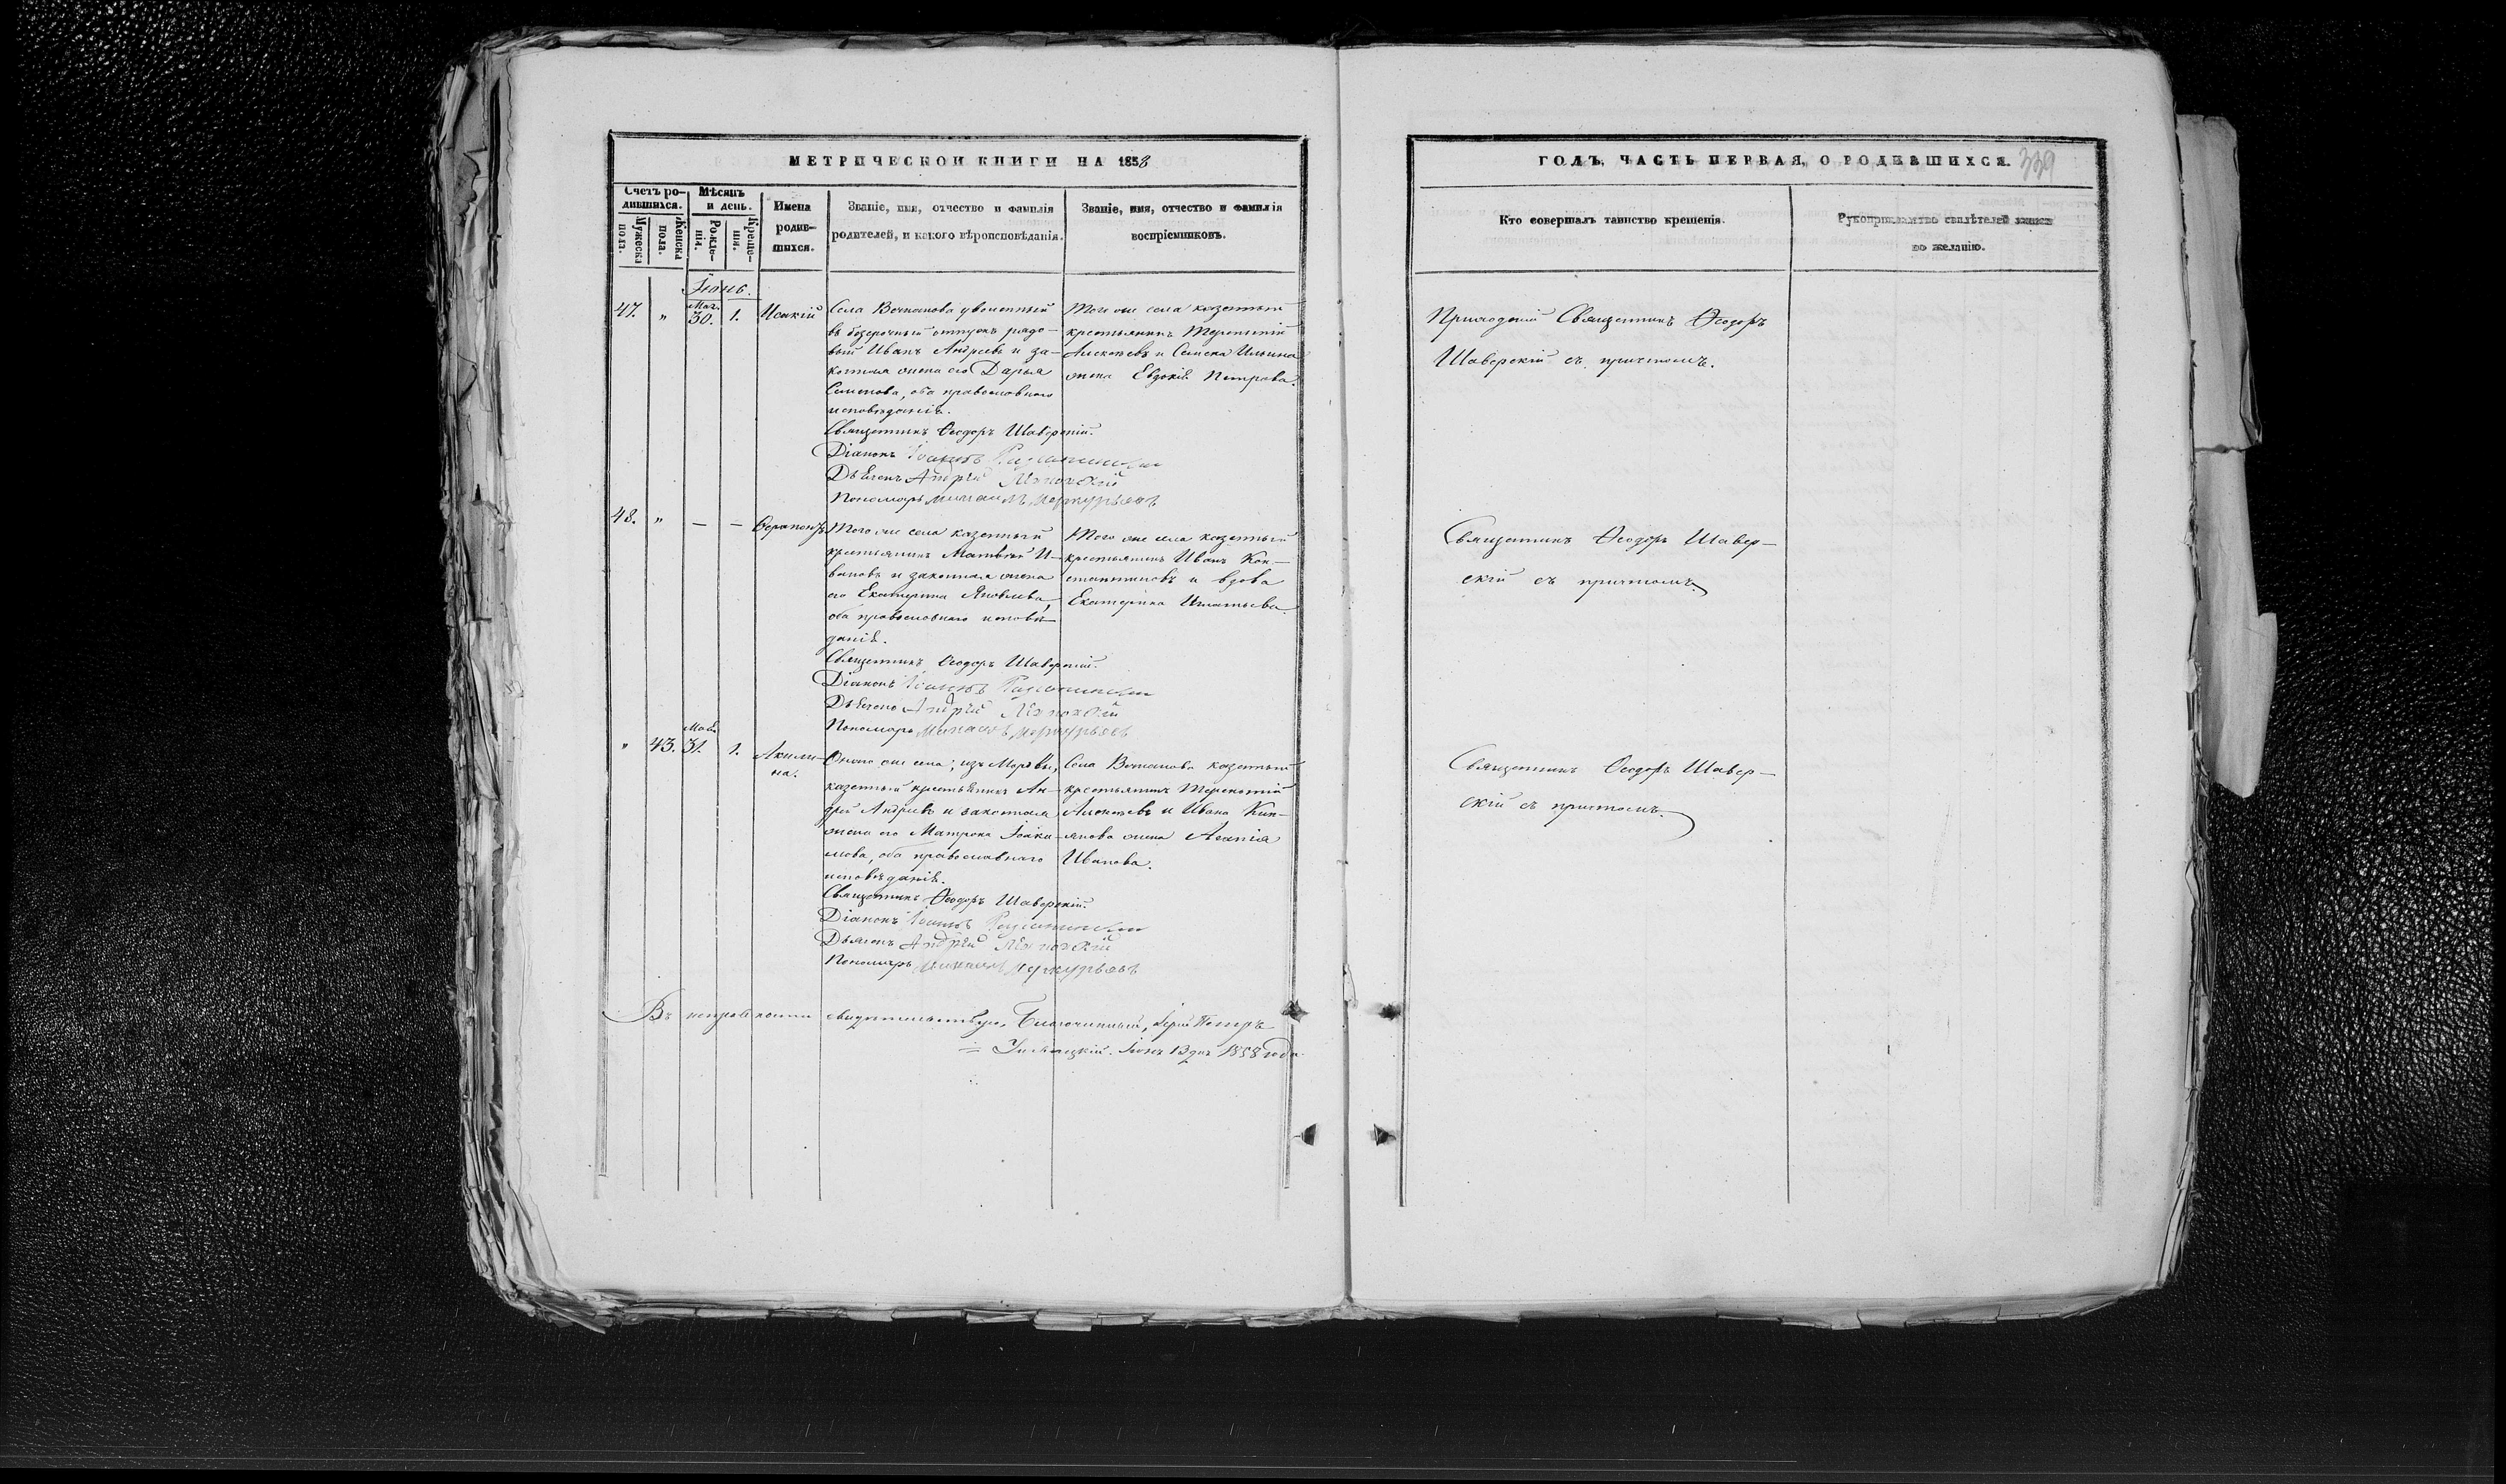 МЕТРИЧЕСКОИ КНИГИ НА 1858
Счетъ ро-
дившихся.
Мужеска пола.
Женска пола.
Мѣсяцъ
и день.
Рожде-
нія.
Креще-
нія.
Имена
родив-
шихся.
Званіе, имя, отчество и фамилія
родителей, и какого вѣроисповѣданія.
Званіе, имя, отчество и фамилія
воспріемниковъ.
Іюнь.
47. " Мая. 30. 1. Исакій
Села уволенный
въ безсрочный отпускъ рядо-
вый Иванъ Андреевъ и за-
конная жена его Дарья
Семенова, оба православнаго
исповѣданія.
Священникъ Ѳеодоръ Шаверскій.
Діаконъ Іоаннъ
Дьячекъ Андрей
Пономарь Михаилъ Меркурьевъ
Того же села казенный
крестьянинъ Терентій
и Семена Ильина
жена Евдокія Петрова.
48. " — — Ѳерапонтъ
Того же села казенный
крестьянинъ Матвѣй И-
вановъ и законная жена
его Екатерина Яковлева,
оба православнаго исповѣ-
данія.
Священникъ Ѳеодоръ Шаверскій.
Діаконъ Іоаннъ
Дьячекъ Андрей
Пономарь Михаилъ Меркурьевъ
Того же села казенный
крестьянинъ Иванъ Кон-
стантиновъ и вдова
Екатерина Игнатьева.
" 43. Мая 31. 1. Акили-
на.
Оного же села, изъ Мордвы,
казенный крестьянинъ Ан-
дрей Андреевъ и законная
жена его Матрона Іоаки-
мова, оба православнаго
исповѣданія.
Священникъ Ѳеодоръ Шаверскій.
Діаконъ Іоаннъ
Дьячекъ Андрей
Пономарь Михаилъ Меркурьевъ
Села казенный
крестьянинъ Терентій
и Ивана
жена Агапія
Иванова.
Въ исправности свидетельствую, Благочинный, Іерей Петръ
Іюня 13 дня 1858 года.
ГОДЪ, ЧАСТЬ ПЕРВАЯ, О РОДИВШИХСЯ. 339
Кто совершалъ таинство крещенія.
Рукоприкладство свидѣтелей записи
по желанію.
Приходскій Священникъ Ѳеодоръ
Шаверскій съ причтомъ.
Священникъ Ѳеодоръ Шавер-
скій съ причтомъ.
Священникъ Ѳеодоръ Шавер-
скій съ причтомъ.